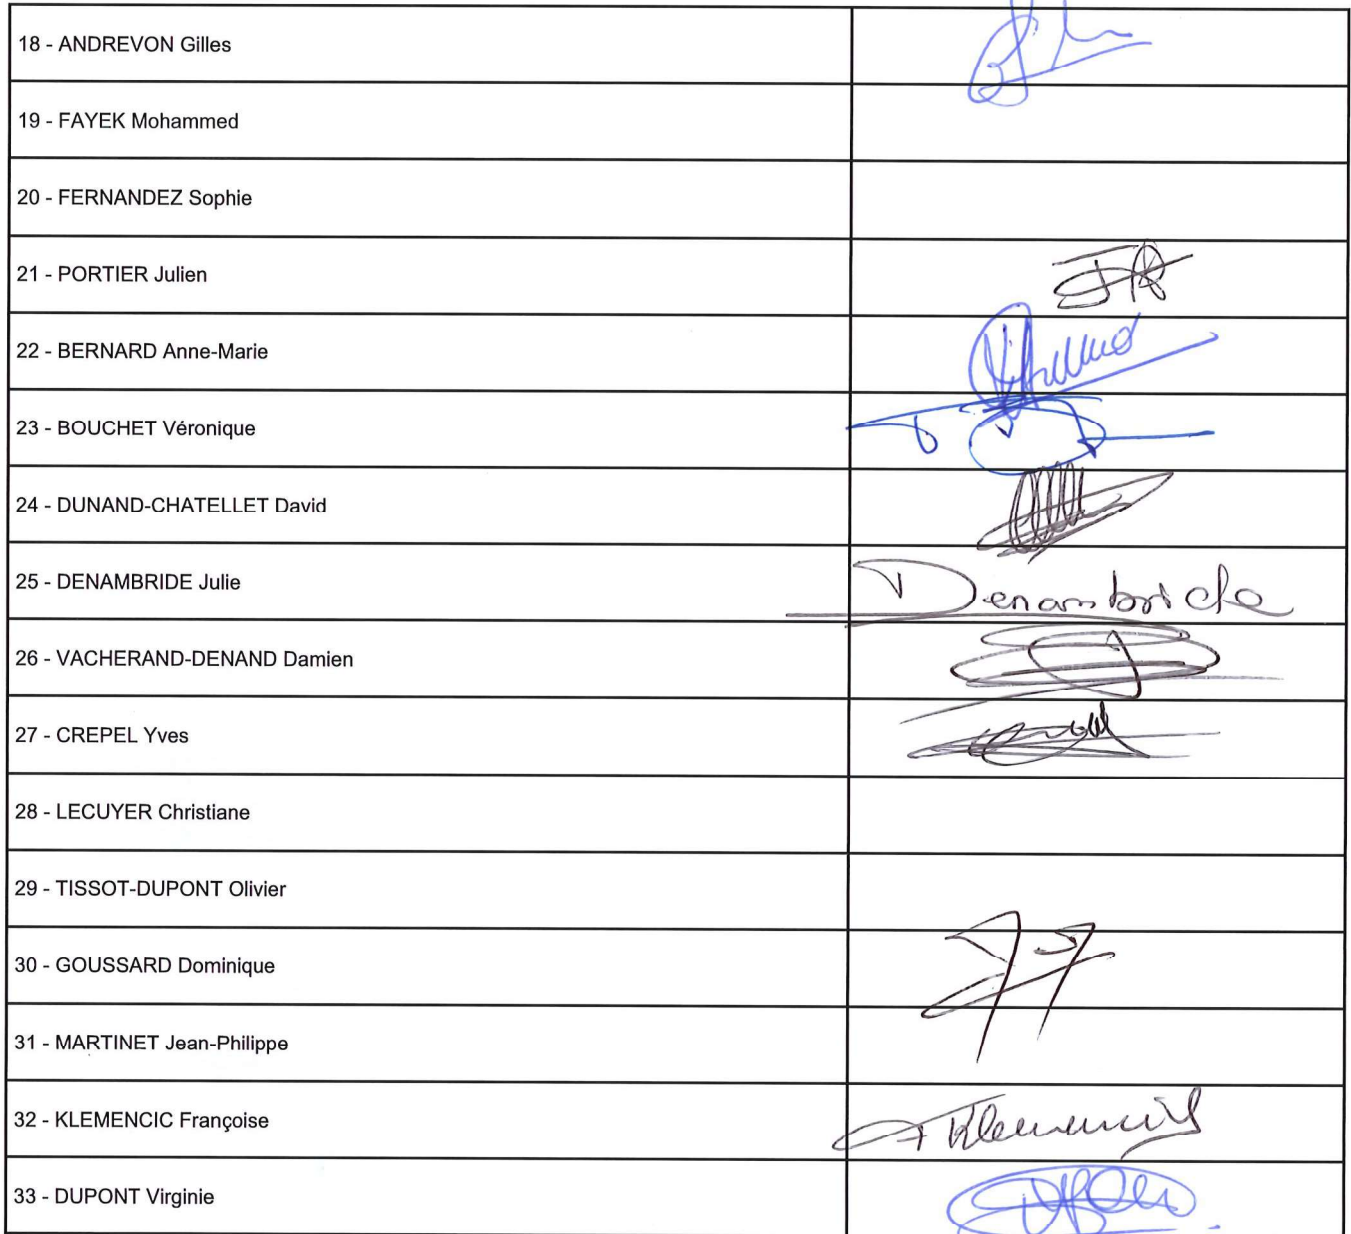 18 - ANDREVON Gilles
19 - FAYEK Mohammed
20 - FERNANDEZ Sophie
21 - PORTIER Julien
22 - BERNARD Anne-Marie
23 - BOUCHET Véronique
24 - DUNAND-CHATELLET David
25 - DENAMBRIDE Julie
Denambride
26 - VACHERAND-DENAND Damien
27 - CREPEL Yves
28 - LECUYER Christiane
29 - TISSOT-DUPONT Olivier
30 - GOUSSARD Dominique
31 - MARTINET Jean-Philippe
32 - KLEMENCIC Françoise
Klemencic
33 - DUPONT Virginie